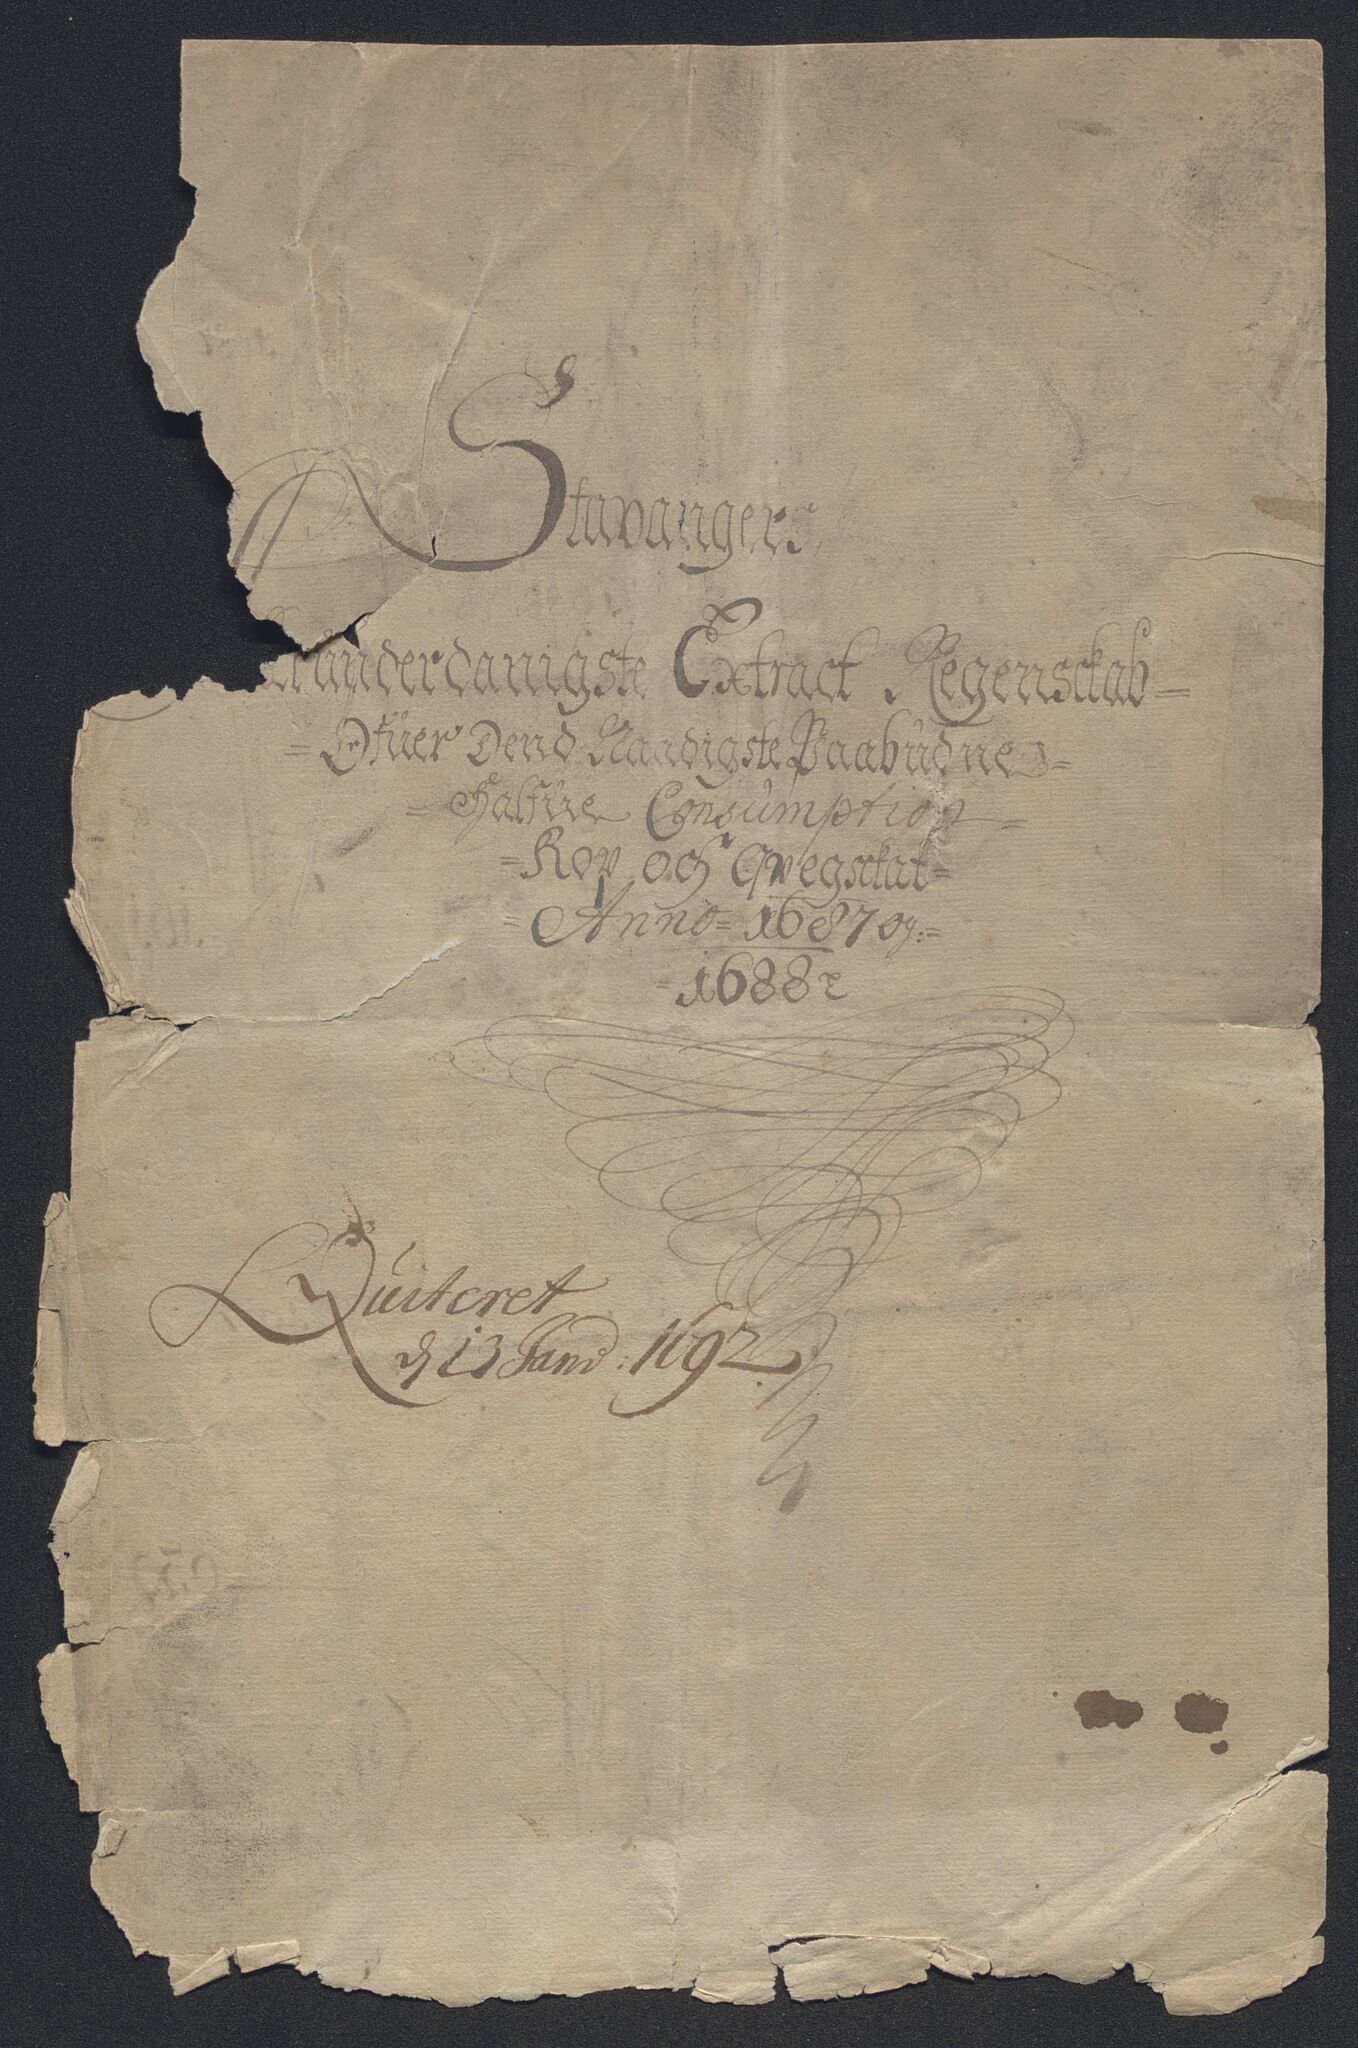 Stavangers
underdanigste Extract Regensckab=
=Ofuer Dend Naadigste Paabudne=
=Halfue Consumption=
=Rov och Qvegsckat=
=Anno= 1687 og:=
=1688
Quiteret
d 13 Janu: 1692